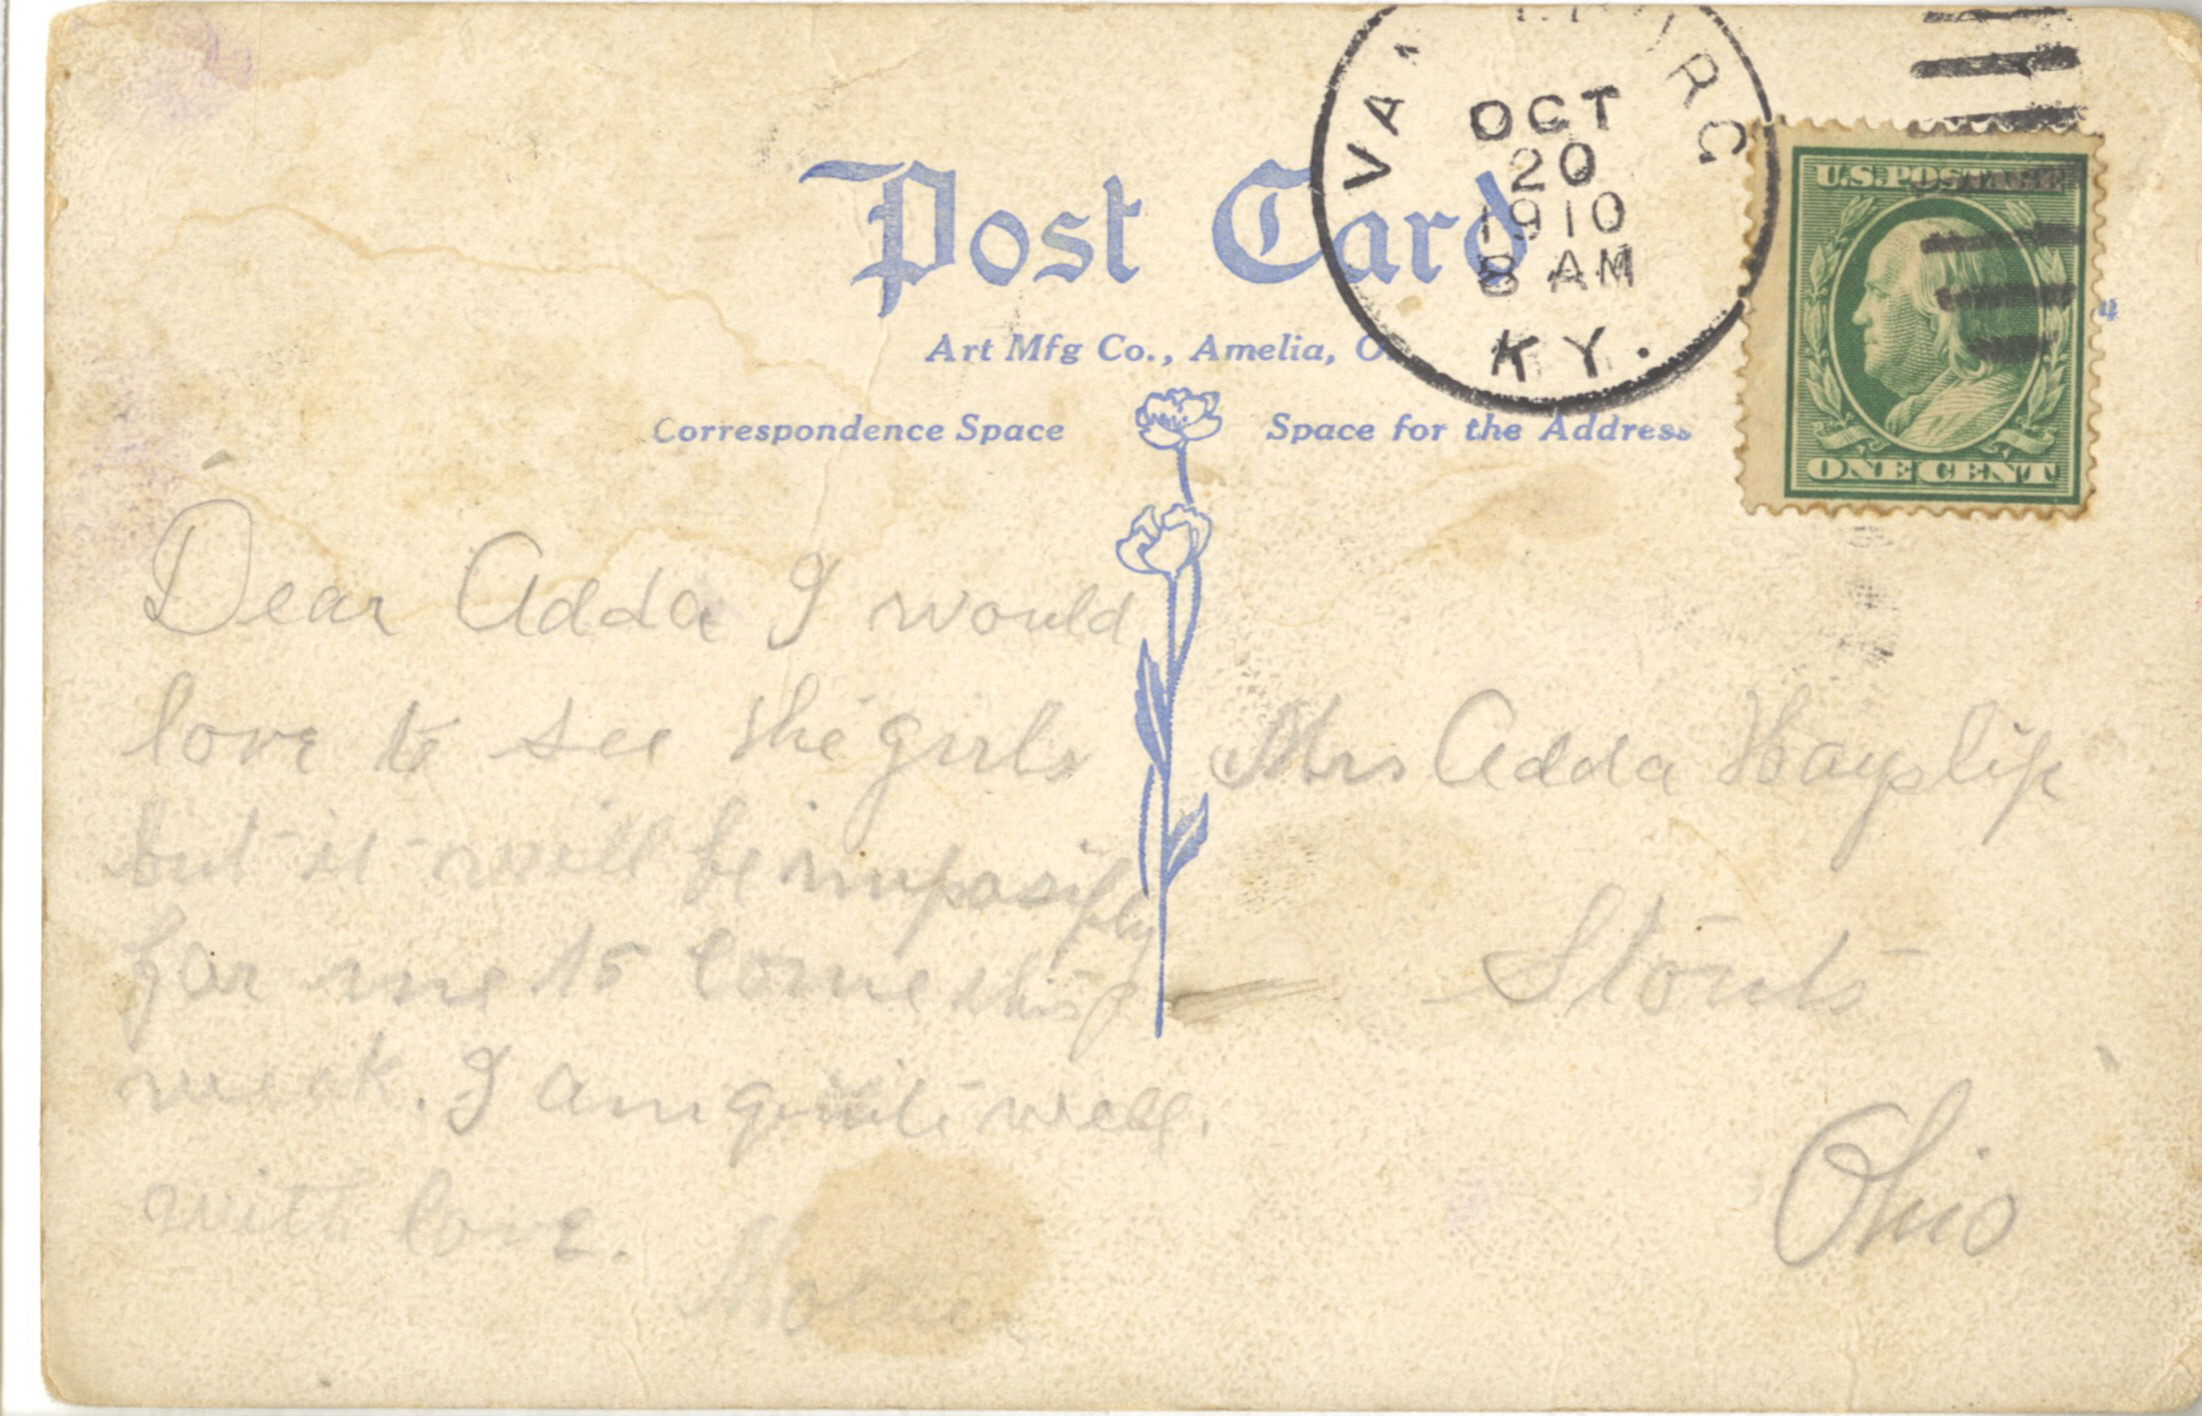 OCT
20
1910
8 AM
KY.
U.S. POSTAGE
ONE CENT
Post Card
Art Mfg Co., Amelia, O.
Correspondence Space
Space for the Address
Dear Adda I would
love to see the girls
but it will be imposibly
for me to come this
weak. I am quite well.
with love.
Mother
Mrs Adda Hayslip
Stouts
Ohio